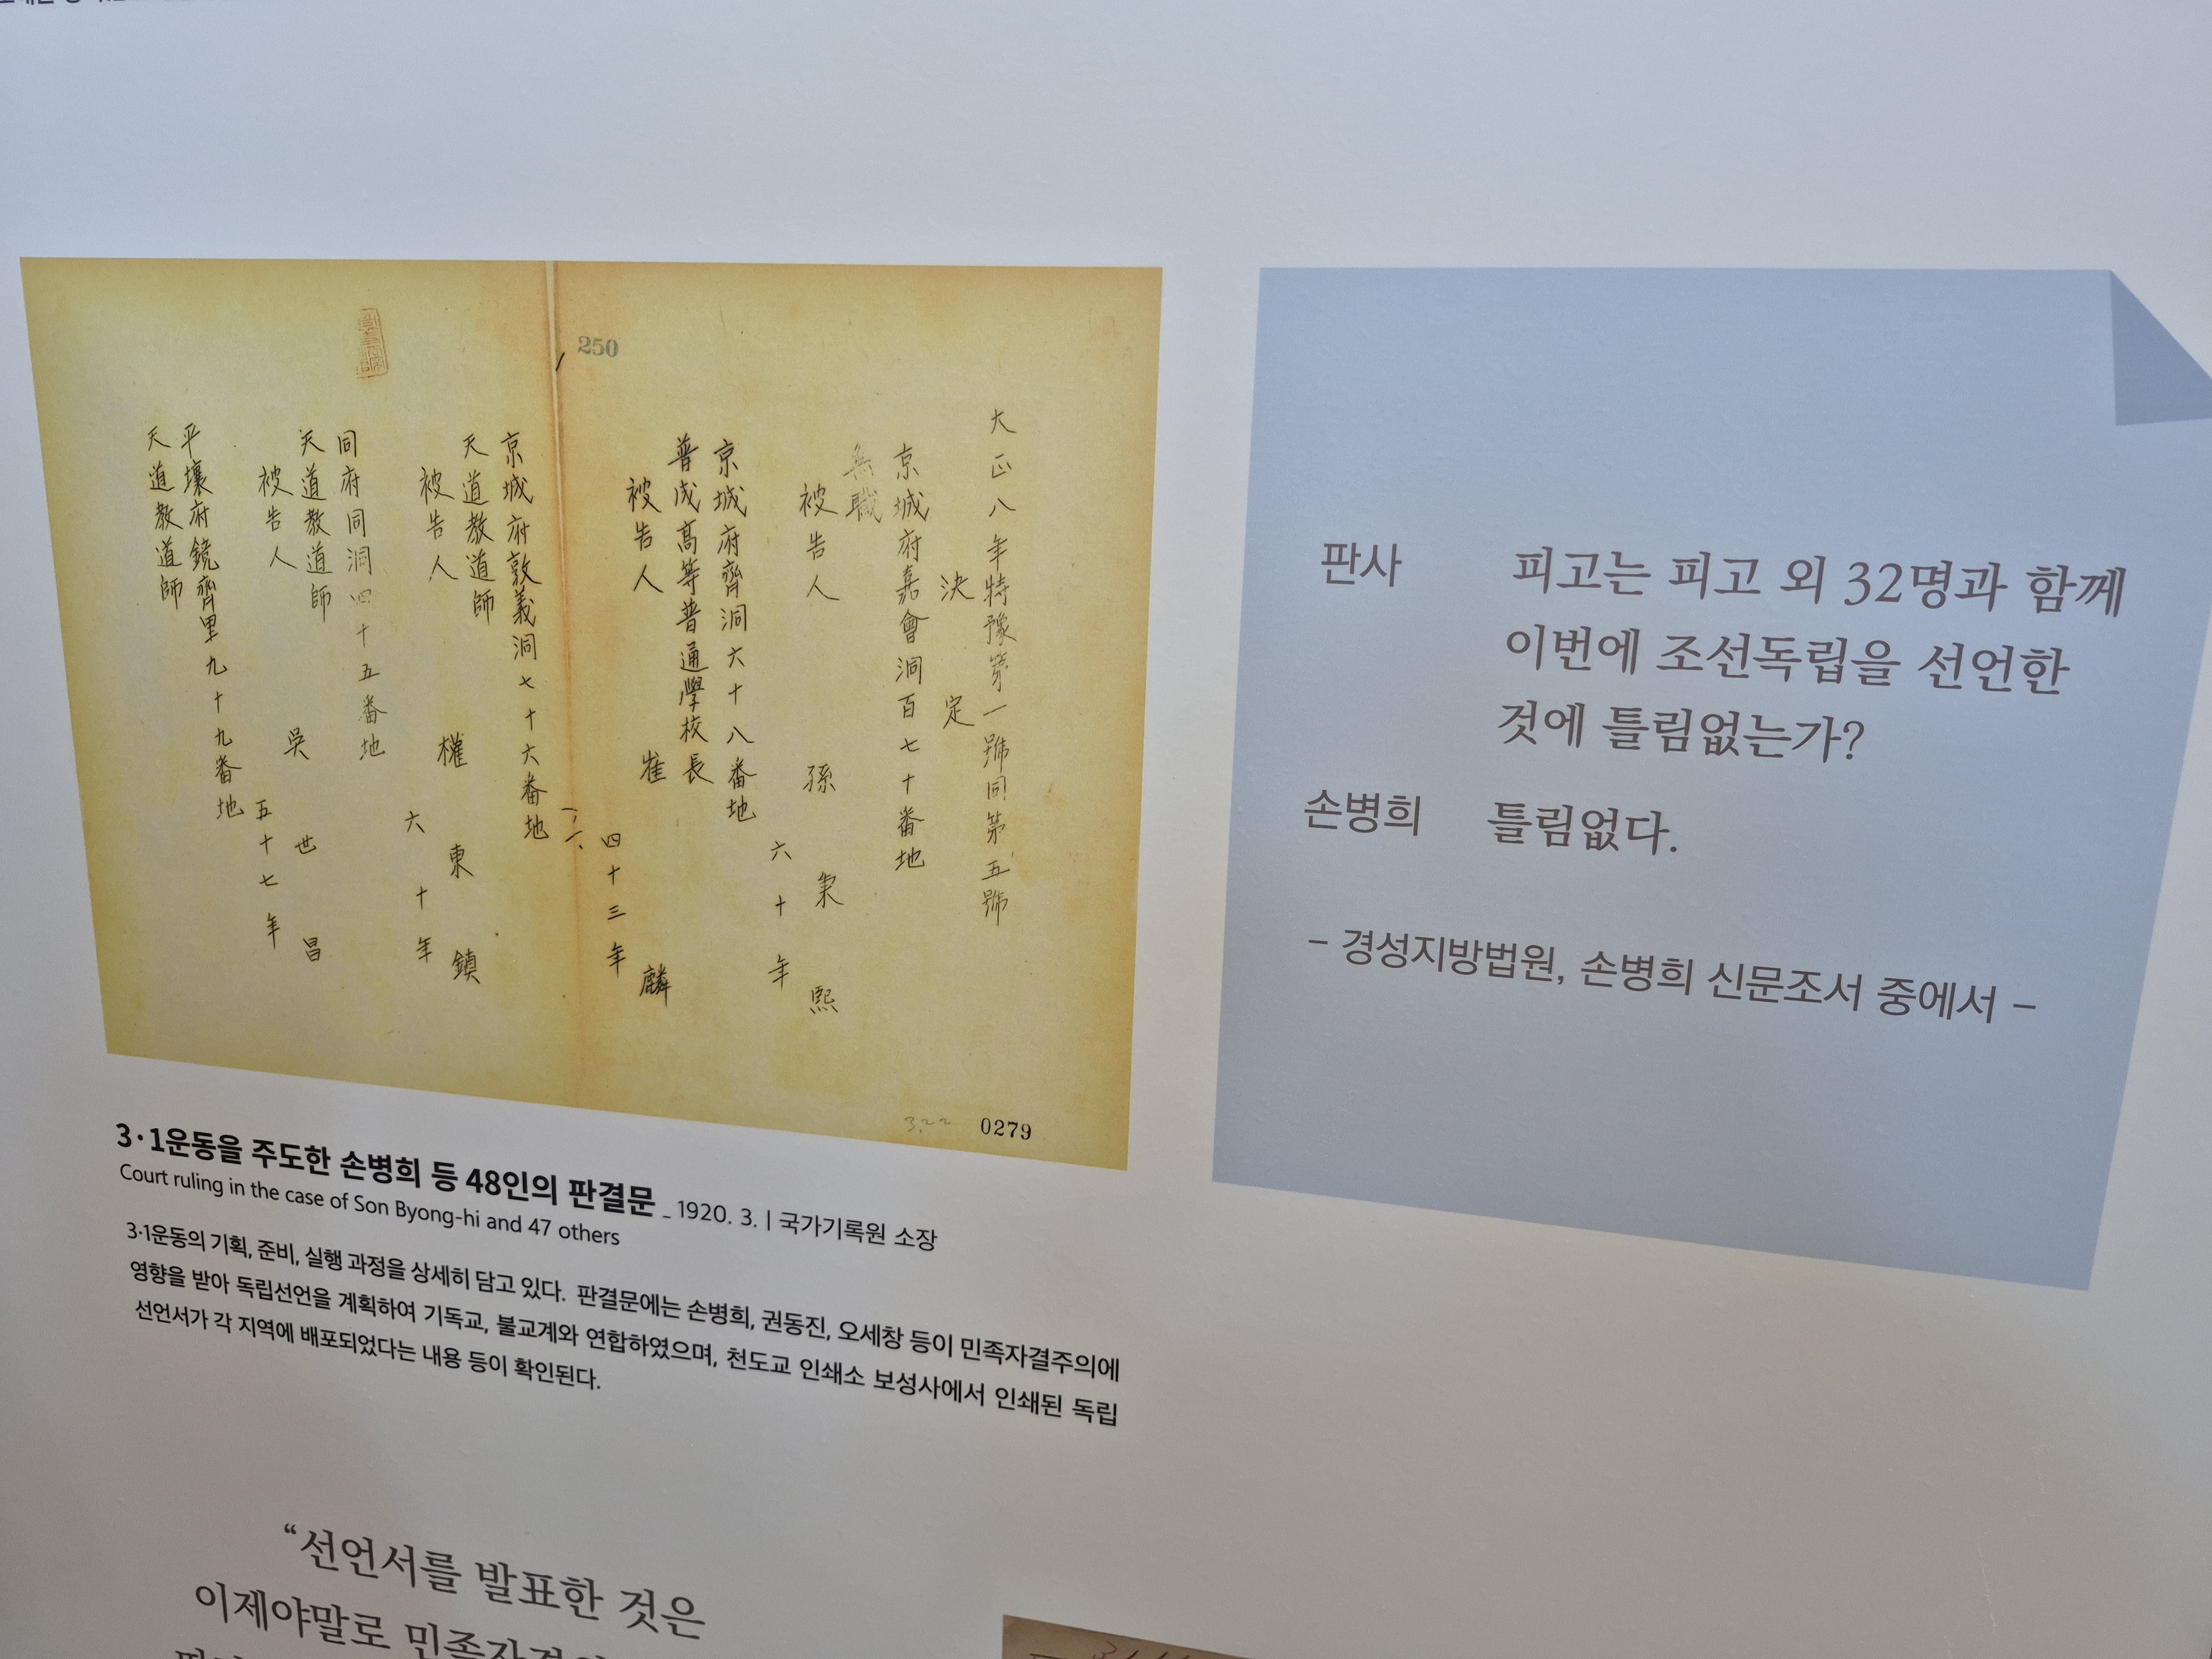 250
大正八年特豫第一號同第五號
決定
京城府嘉會洞百七十番地
無職
被告人 孫秉熙
六十年
京城府齊洞六十八番地
普成高等普通學校長
被告人 崔麟
四十三年
京城府敦義洞七十六番地
天道教道師
被告人 權東鎮
六十年
同府同洞四十五番地
天道教道師
被告人 吳世昌
五十七年
平壤府鏡齊里九十九番地
天道教道師
3.22 0279
3·1운동을 주도한 손병희 등 48인의 판결문 _ 1920. 3. | 국가기록원 소장
Court ruling in the case of Son Byong-hi and 47 others
3·1운동의 기획, 준비, 실행 과정을 상세히 담고 있다. 판결문에는 손병희, 권동진, 오세창 등이 민족자결주의에
영향을 받아 독립선언을 계획하여 기독교, 불교계와 연합하였으며, 천도교 인쇄소 보성사에서 인쇄된 독립
선언서가 각 지역에 배포되었다는 내용 등이 확인된다.
판사 피고는 피고 외 32명과 함께
이번에 조선독립을 선언한
것에 틀림없는가?
손병희 틀림없다.
– 경성지방법원, 손병희 신문조서 중에서 –
“선언서를 발표한 것은
이제야말로